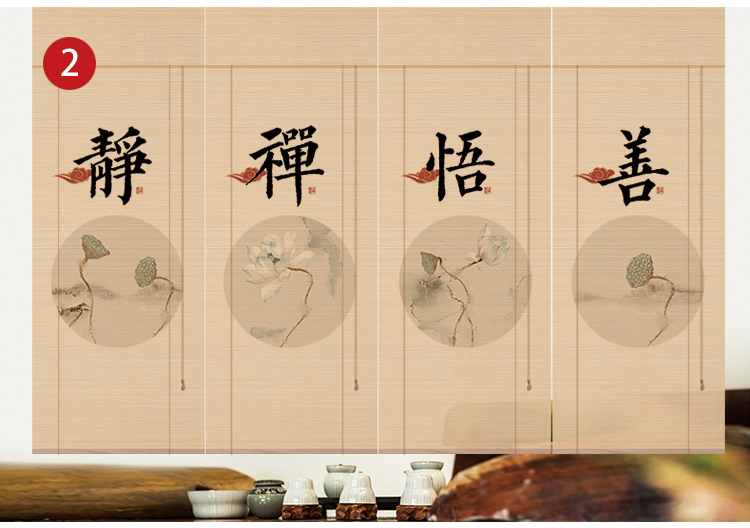 2
靜
禪
悟
善